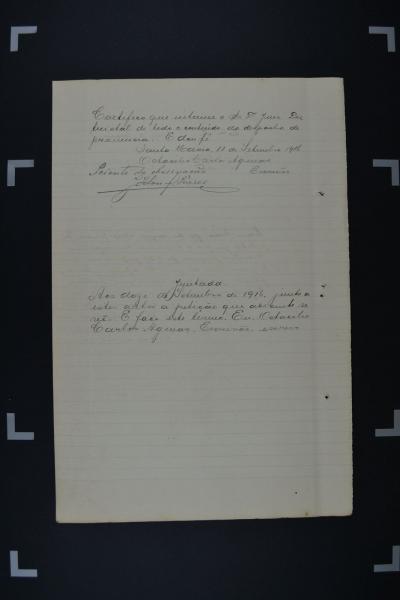 Certifico que intimei o Sr. Dr. Juiz Dis
trictal de todo o conteudo do despacho de
pronuncia. E dou fé
Santa Maria, 11 de Setembro 1916
Octacilio Carlos Aguiar
Sciente da designação Escrivão
Juntada
Aos doze de Setembro de 1916, junto a
estes autos a petição que adiante se
vê. E faço este termo. Eu, Octacilio
Carlos Aguiar, Escrivão, escrevi